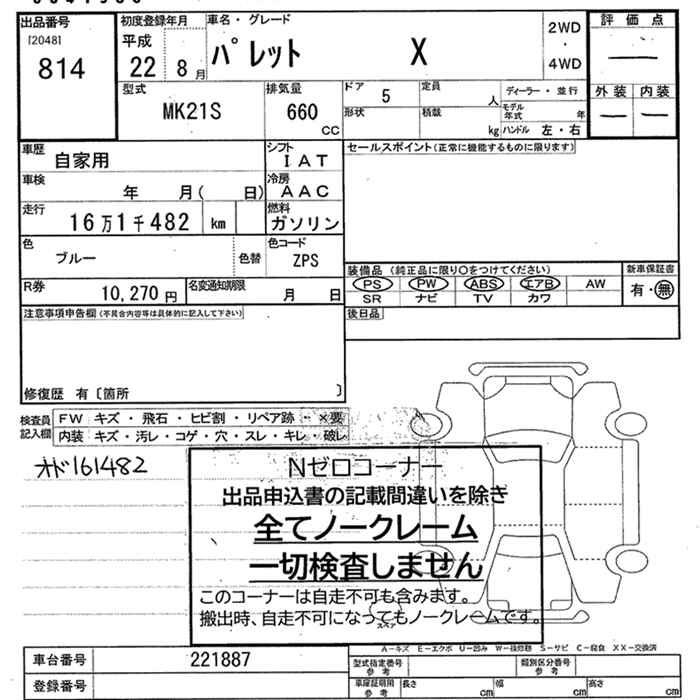 出品番号 初度登録年月 車名・グレード 評価点
[2048] 平成 2WD
814 22 8月 パレット X ・ ―
4WD
型式 排気量 ドア 5 定員 人 ディーラー・並行 外装 内装
MK21S 660 cc 形状 積載 kg モデル年式 年 ― ―
ハンドル 左・右
車歴 自家用 シフト IAT セールスポイント(正常に機能するものに限ります)
車検 年 月( 日) 冷房 AAC
走行 16万1千482 km 燃料 ガソリン
色 ブルー 色替 色コード ZPS
装備品 (純正品に限り○をつけてください) 新車保証書
R券 10,270円 名変通知期限 月 日 PS PW ABS エアB AW 有・無
SR ナビ TV カワ
注意事項申告欄(不具合内容等は具体的に記入して下さい) 後日品
修復歴 有〔箇所 〕
検査員記入欄 FW キズ・飛石・ヒビ割・リペア跡・×要
内装 キズ・汚レ・コゲ・穴・スレ・キレ・破レ
オド161482
Nゼロコーナー
出品申込書の記載間違いを除き
全てノークレーム
一切検査しません
このコーナーは自走不可も含みます。
搬出時、自走不可になってもノークレームです。
スペア
A-キズ E-エクボ U-凹み W-補修跡 S-サビ C-腐食 XX-交換済
車台番号 221887 型式指定番号 参考 類別区分番号 参考
登録番号 車庫証明用 参考 長さ cm 幅 cm 高さ cm